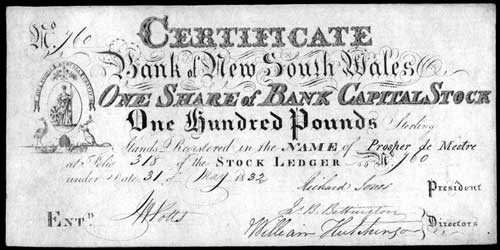 No. 960
CERTIFICATE
Bank of New South Wales
ONE SHARE of BANK CAPITAL STOCK
One Hundred Pounds Sterling
Stands Registered in the NAME of Prosper de Mestre
at Folio 318 of the STOCK LEDGER as No. 960
under Date 31 of May 1832
Richard Jones President
ENTD. J. B. Bettington
William Hutchinson Directors